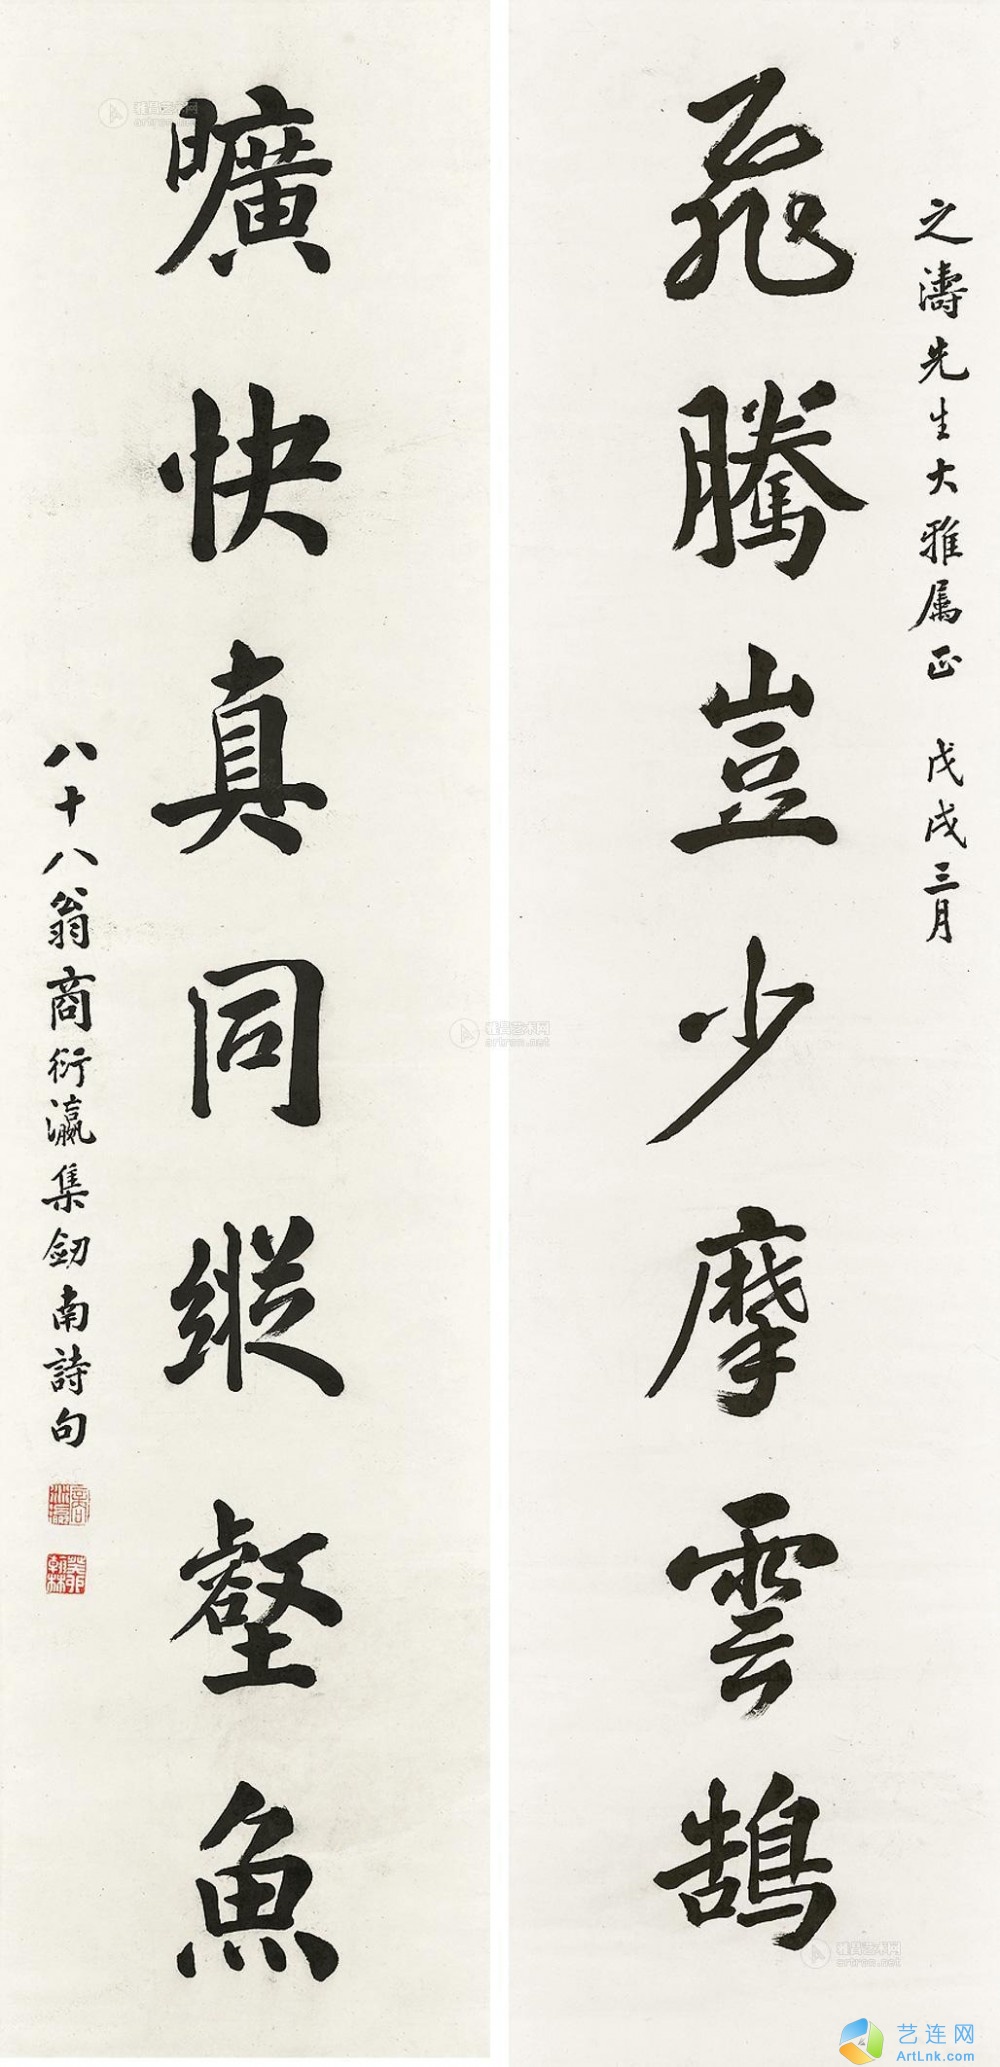 之濤先生大雅属正 戊戌三月
飛騰豈少摩雲鵠
曠快真同縱壑魚
八十八翁商衍瀛集劒南詩句
雅昌艺术网
artron.net
艺连网
ArtLnk.com